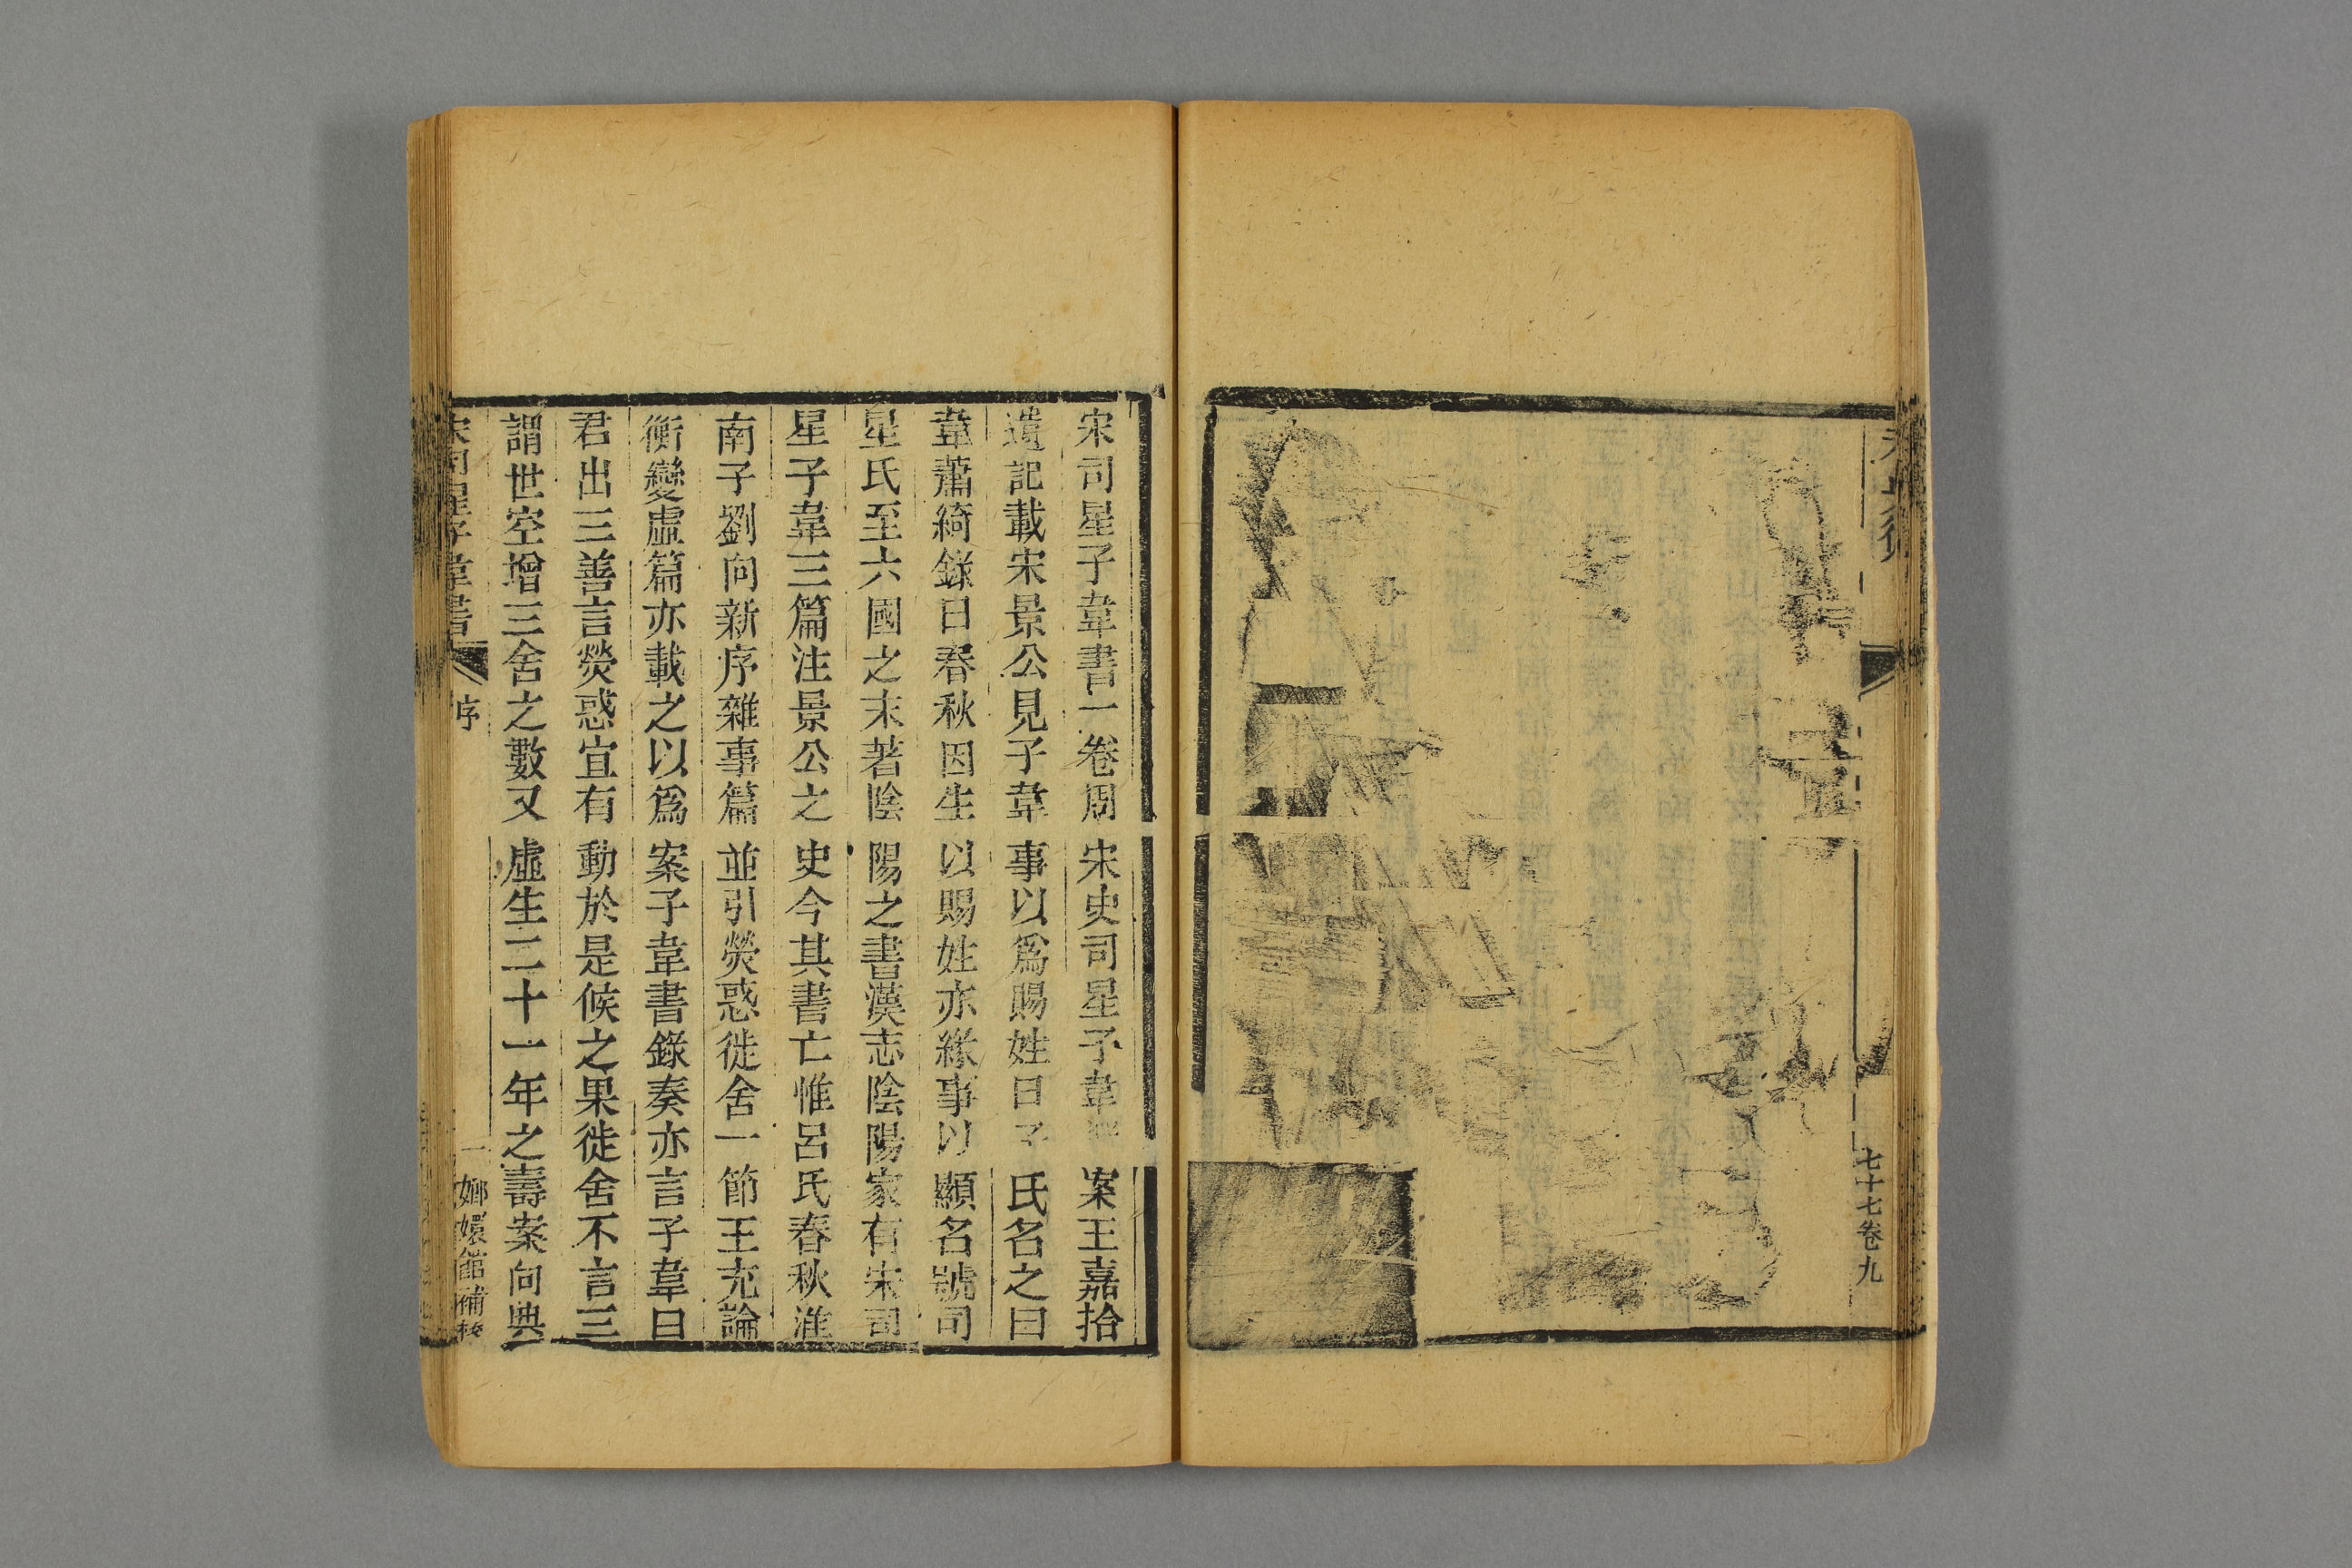 七十七卷九
宋司星子韋書一卷周宋史司星子韋案王嘉拾
遺記載宋景公見子韋事以爲賜姓曰子氏名之曰
韋蕭綺錄曰春秋因生以賜姓亦緣事以顯名號司
星氏至六國之末著陰陽之書漢志陰陽家有宋司
星子韋三篇注景公之史今其書亡惟呂氏春秋淮
南子劉向新序雜事篇並引熒惑徙舍一節王充論
衡變虛篇亦載之以爲案子韋書錄奏亦言子韋曰
君出三善言熒惑宜有動於是候之果徙舍不言三
謂世空增三舍之數又虛生二十一年之壽案向典
宋司星子韋書 序 一 嫏嬛館補校